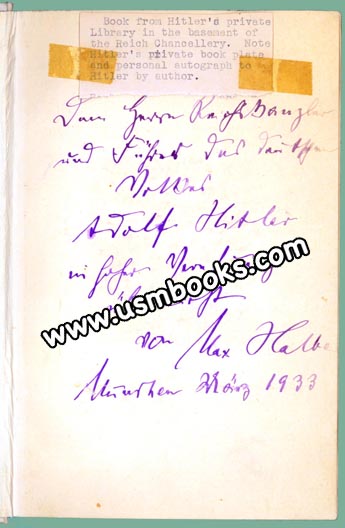 Book from Hitler's private
Library in the basement of
the Reich Chancellery. Note
Hitler's private book plate
and personal autograph to
Hitler by author.
Dem Herrn Reichskanzler
und Führer des deutschen
Volkes
Adolf Hitler
in hoher Verehrung
www.usmbooks.com
von Max Halbe
München März 1933